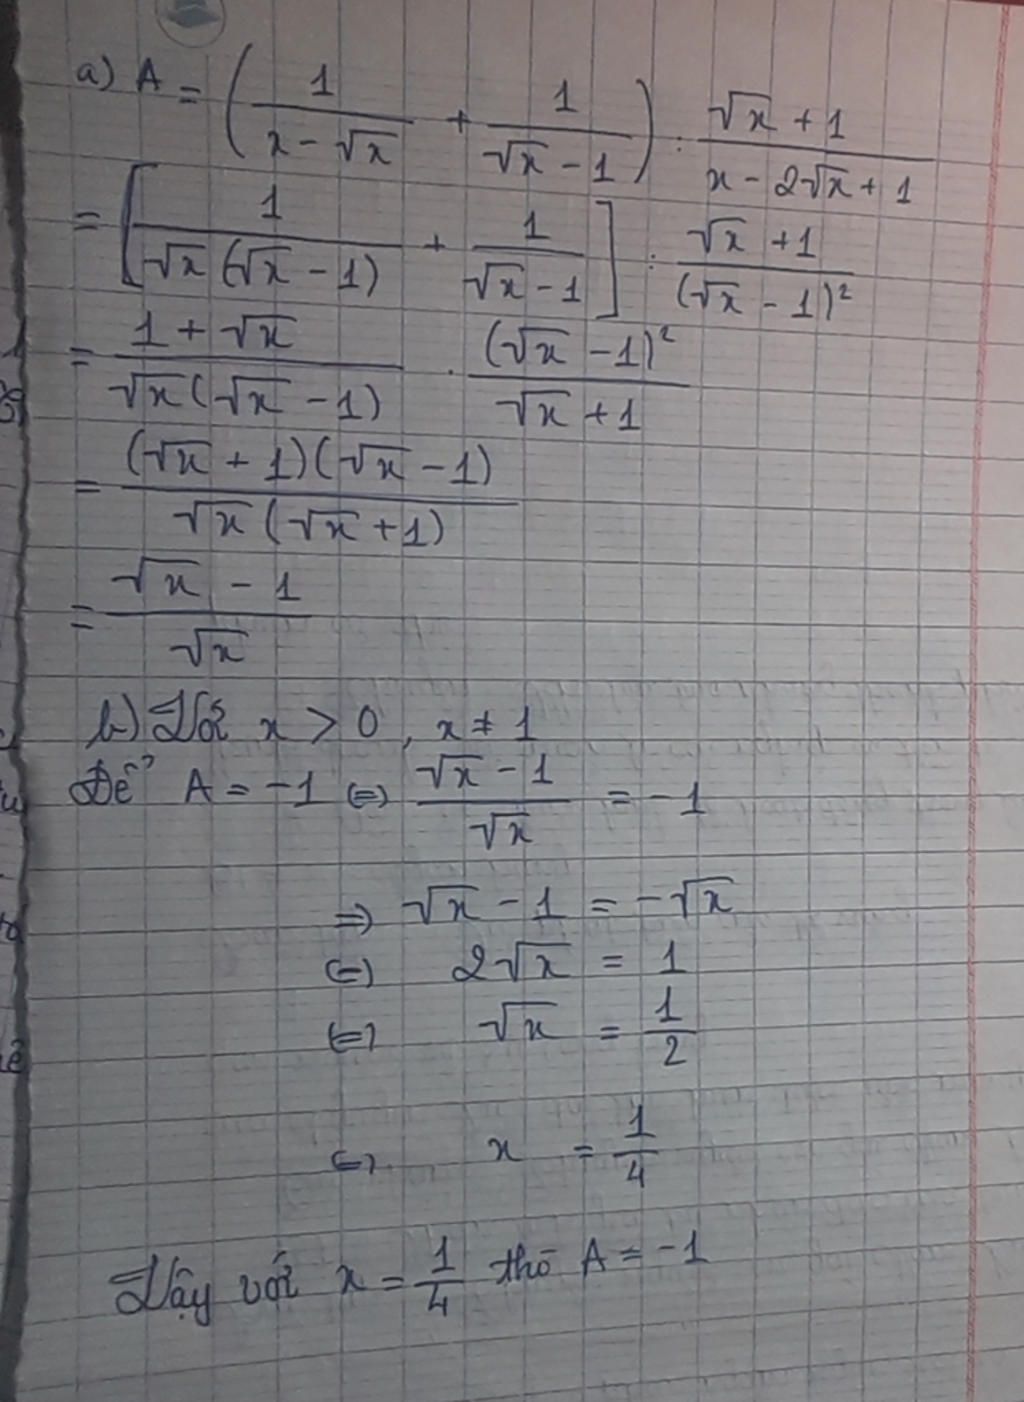 a) A = ( 1/(x - √x) + 1/(√x - 1) ) : (√x + 1)/(x - 2√x + 1)
= [ 1/(√x (√x - 1)) + 1/(√x - 1) ] : (√x + 1)/(√x - 1)²
= (1 + √x)/(√x (√x - 1)) . (√x - 1)²/(√x + 1)
= (√x + 1)(√x - 1)/(√x (√x + 1))
= (√x - 1)/√x
b) Với x > 0, x ≠ 1
Để A = -1 ⇔ (√x - 1)/√x = -1
⇒ √x - 1 = -√x
⇔ 2√x = 1
⇔ √x = 1/2
⇔ x = 1/4
Vậy với x = 1/4 thì A = -1